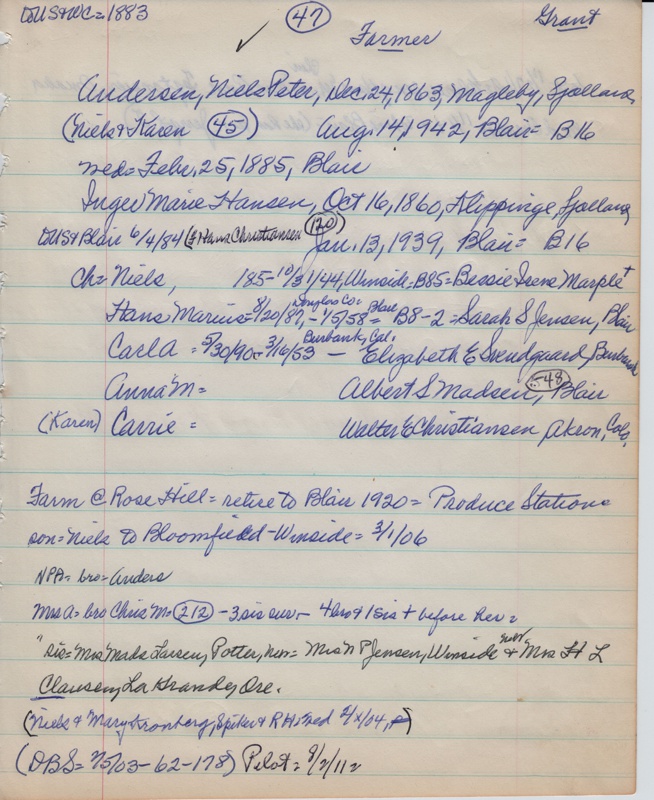 toUS&WC=1883 47 Grant
Farmer
Andersen, Niels Peter, Dec. 24, 1863, Magleby, Sjolland,
(Niels & Karen 45) Aug. 14, 1942, Blair= B16
wed=Febr. 25, 1885, Blair
Inger Marie Hansen, Oct 16, 1860, Klippinge, Sjolland,
toUS&Blair 6/4/84 (% Hans Christiansen 120) Jan. 13, 1939, Blair= B16
Ch= Niels, 185-10/31/44, Winside-B85=Bessie Irene Marple+
Hans Marius=8/20/87, Douglas Co=-1/5/58= Blair B8-2=Sarah S Jensen, Blair
Carl A =5/30/90-3/16/53 Burbank, Cal. - Elizabeth E Svendgaard, Burbank
Anna M= Albert S Madsen, 548, Blair
(Karen) Carrie = Walter E Christiansen, Akron, Colo,
Farm @ Rose Hill= retire to Blair 1920= Produce Station=
son=Niels to Bloomfield-Winside= 3/1/06
NPA= bro=Anders
Mrs A= bro Chris M= 212 -3 sis surv- 4 bro & 1 sis + before her=
" sis=Mrs Mads Larsen, Potter, Mrs N P Jensen, Winside & Mrs H L
Clausen, La Grande, Ore.
(Niels & Mary Kronberg, Spiker & RH=wed 2/x/04,)
(DBS= 2/5/03-62-178) Pilot= 8/2/11=